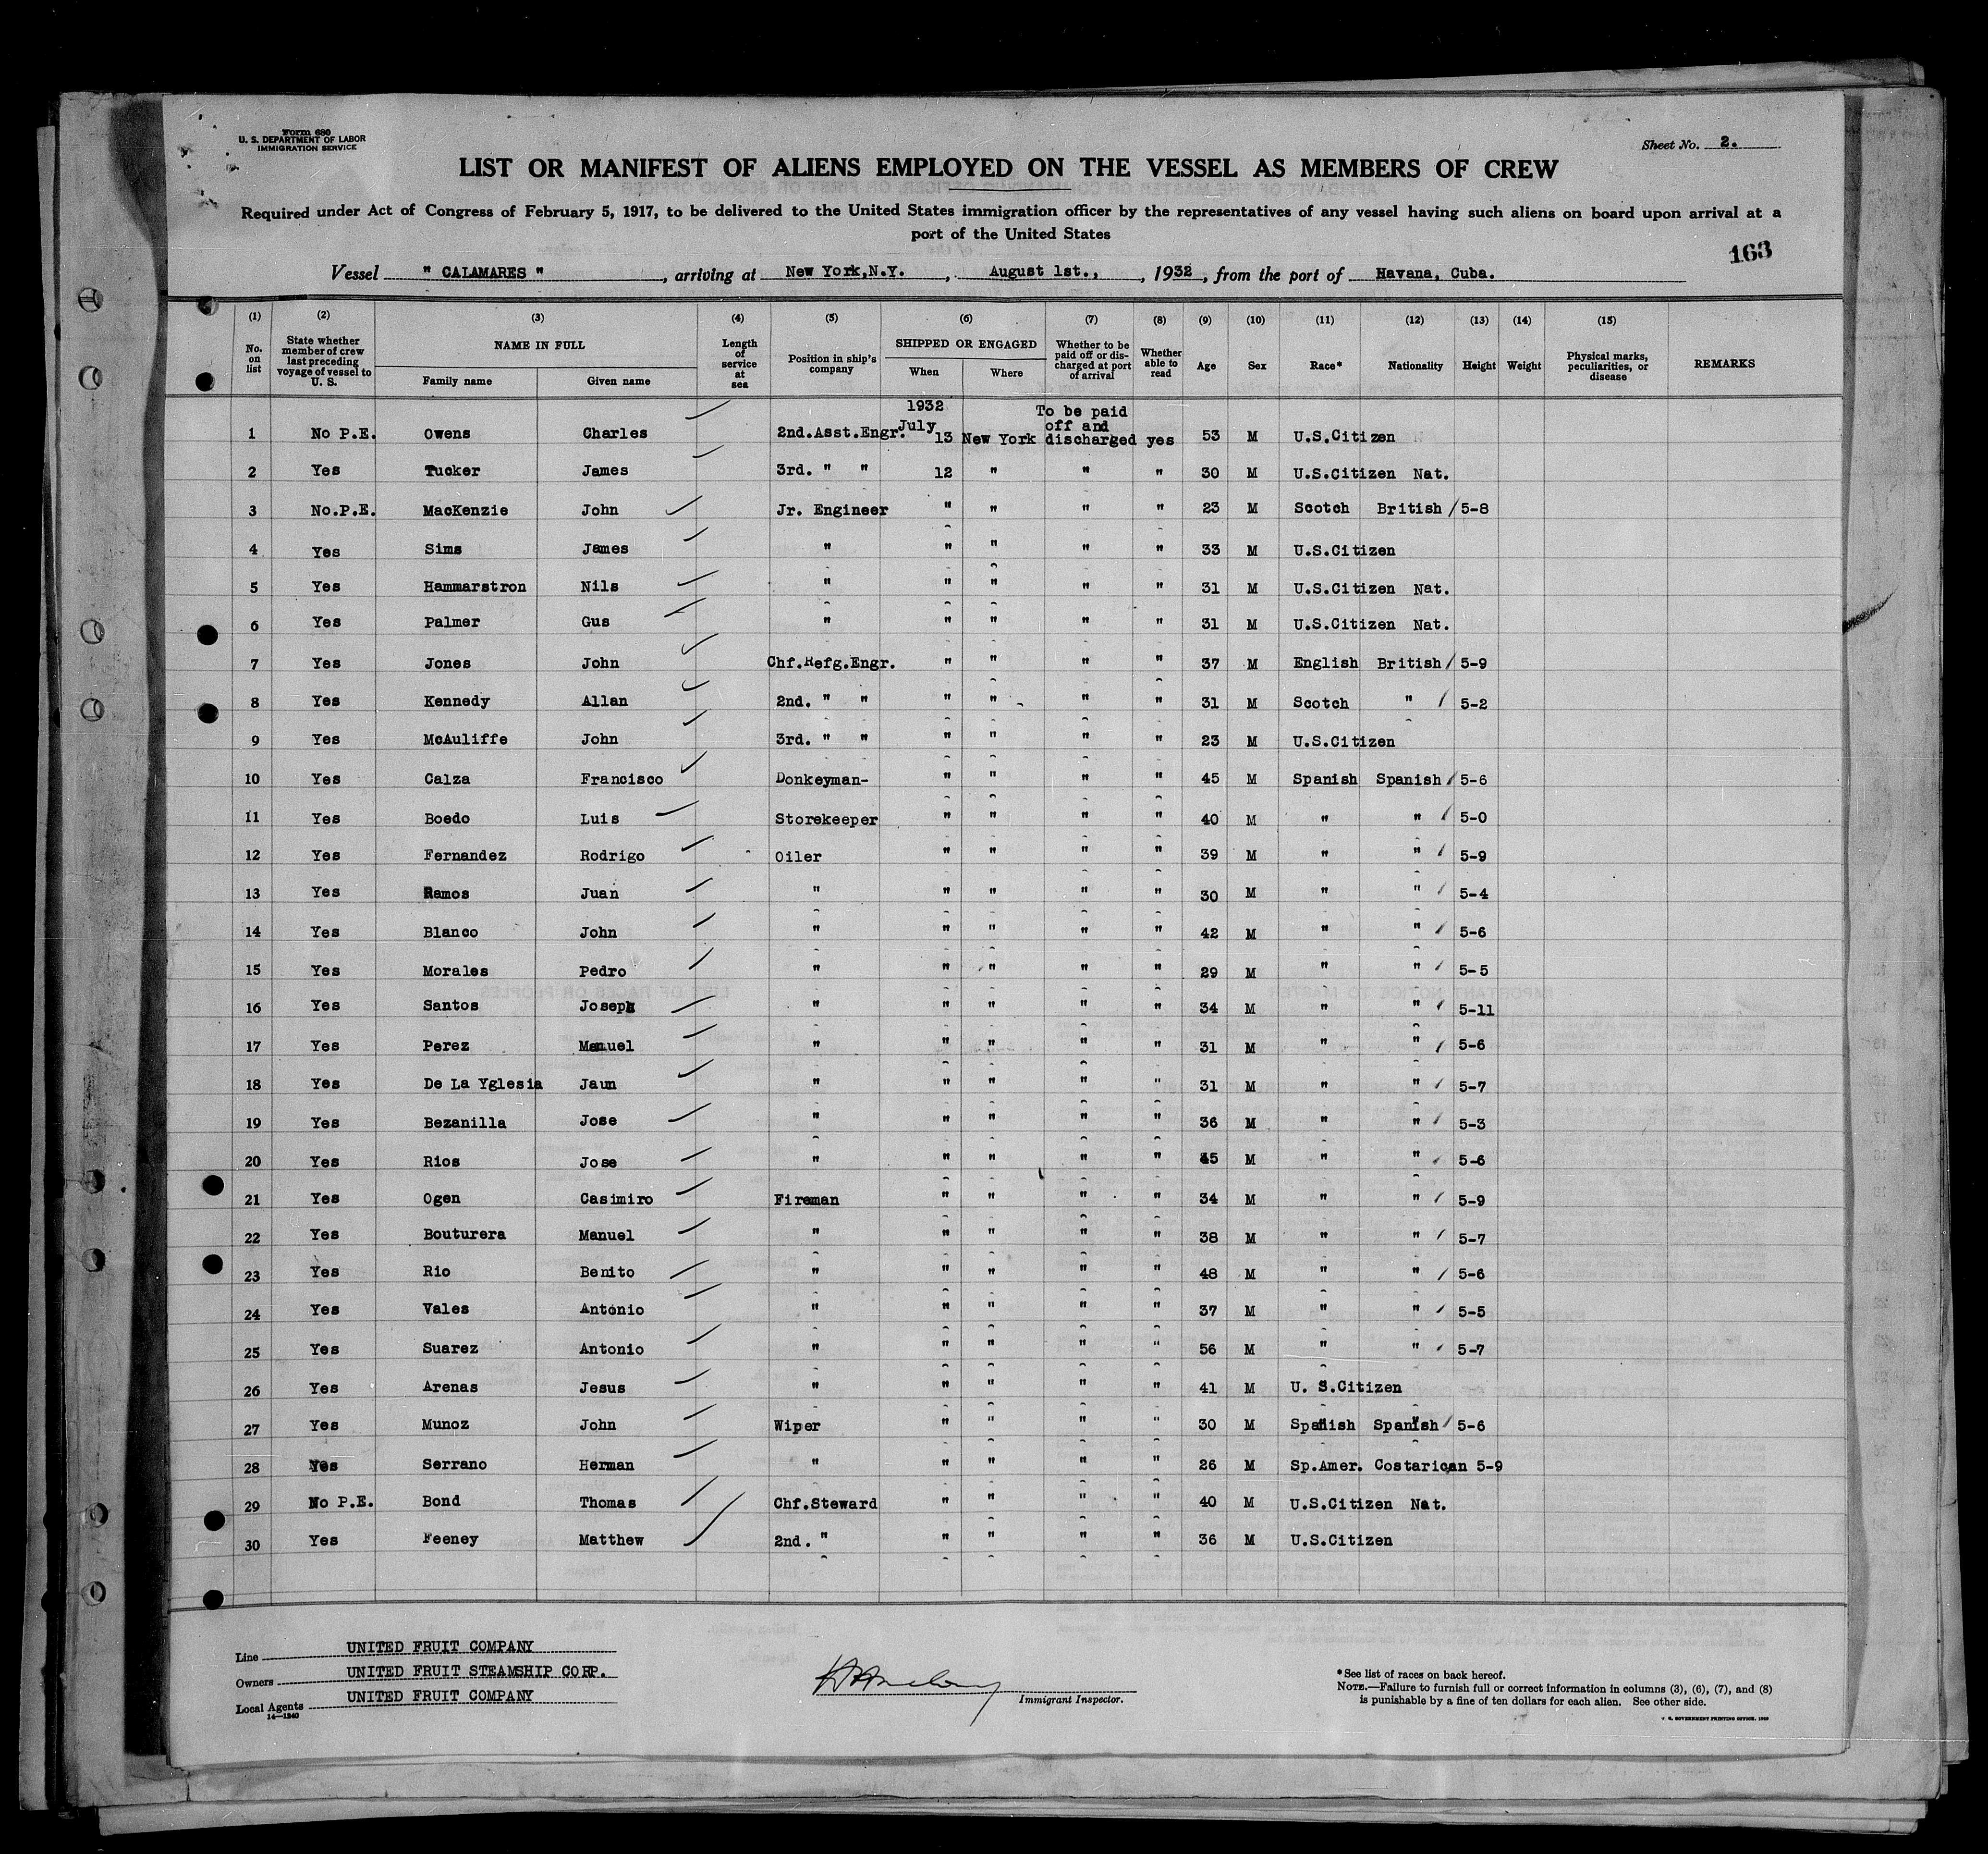 Form 680
U. S. DEPARTMENT OF LABOR
IMMIGRATION SERVICE
Sheet No. 2.
LIST OR MANIFEST OF ALIENS EMPLOYED ON THE VESSEL AS MEMBERS OF CREW
Required under Act of Congress of February 5, 1917, to be delivered to the United States immigration officer by the representatives of any vessel having such aliens on board upon arrival at a
port of the United States
163
Vessel " CALAMARES ", arriving at New York, N.Y., August 1st., , 1932, from the port of Havana, Cuba.
(1) (2) (3) (4) (5) (6) (7) (8) (9) (10) (11) (12) (13) (14) (15)
No. on list State whether member of crew last preceding voyage of vessel to U. S. NAME IN FULL Family name Given name Length of service at sea Position in ship's company SHIPPED OR ENGAGED When Where Whether to be paid off or discharged at port of arrival Whether able to read Age Sex Race* Nationality Height Weight Physical marks, peculiarities, or disease REMARKS
1932 To be paid
July off and
1 No P.E. Owens Charles 2nd.Asst.Engr. 13 New York discharged yes 53 M U.S.Citizen
2 Yes Tucker James 3rd. " " 12 " " " 30 M U.S.Citizen Nat.
3 No.P.E. MacKenzie John Jr. Engineer " " " " 23 M Scotch British 5-8
4 Yes Sims James " " " " " 33 M U.S.Citizen
5 Yes Hammarstron Nils " " " " " 31 M U.S.Citizen Nat.
6 Yes Palmer Gus " " " " " 31 M U.S.Citizen Nat.
7 Yes Jones John Chf.Refg.Engr. " " " " 37 M English British 5-9
8 Yes Kennedy Allan 2nd. " " " " " " 31 M Scotch " 5-2
9 Yes McAuliffe John 3rd. " " " " " " 23 M U.S.Citizen
10 Yes Calza Francisco Donkeyman- " " " " 45 M Spanish Spanish 5-6
11 Yes Boedo Luis Storekeeper " " " " 40 M " " 5-0
12 Yes Fernandez Rodrigo Oiler " " " " 39 M " " 5-9
13 Yes Ramos Juan " " " " " 30 M " " 5-4
14 Yes Blanco John " " " " " 42 M " " 5-6
15 Yes Morales Pedro " " " " " 29 M " " 5-5
16 Yes Santos Joseph " " " " " 34 M " " 5-11
17 Yes Perez Manuel " " " " " 31 M " " 5-6
18 Yes De La Yglesia Jaun " " " " " 31 M " " 5-7
19 Yes Bezanilla Jose " " " " " 36 M " " 5-3
20 Yes Rios Jose " " " " " 45 M " " 5-6
21 Yes Ogen Casimiro Fireman " " " " 34 M " " 5-9
22 Yes Bouturera Manuel " " " " " 38 M " " 5-7
23 Yes Rio Benito " " " " " 48 M " " 5-6
24 Yes Vales Antonio " " " " " 37 M " " 5-5
25 Yes Suarez Antonio " " " " " 56 M " " 5-7
26 Yes Arenas Jesus " " " " " 41 M U. S.Citizen
27 Yes Munoz John Wiper " " " " 30 M Spanish Spanish 5-6
28 Yes Serrano Herman " " " " " 26 M Sp.Amer. Costarican 5-9
29 No P.E. Bond Thomas Chf.Steward " " " " 40 M U.S.Citizen Nat.
30 Yes Feeney Matthew 2nd. " " " " " 36 M U.S.Citizen
Line UNITED FRUIT COMPANY
Owners UNITED FRUIT STEAMSHIP CORP.
Local Agents UNITED FRUIT COMPANY
14—1240
Immigrant Inspector.
*See list of races on back hereof.
NOTE.—Failure to furnish full or correct information in columns (3), (6), (7), and (8)
is punishable by a fine of ten dollars for each alien. See other side.
GOVERNMENT PRINTING OFFICE